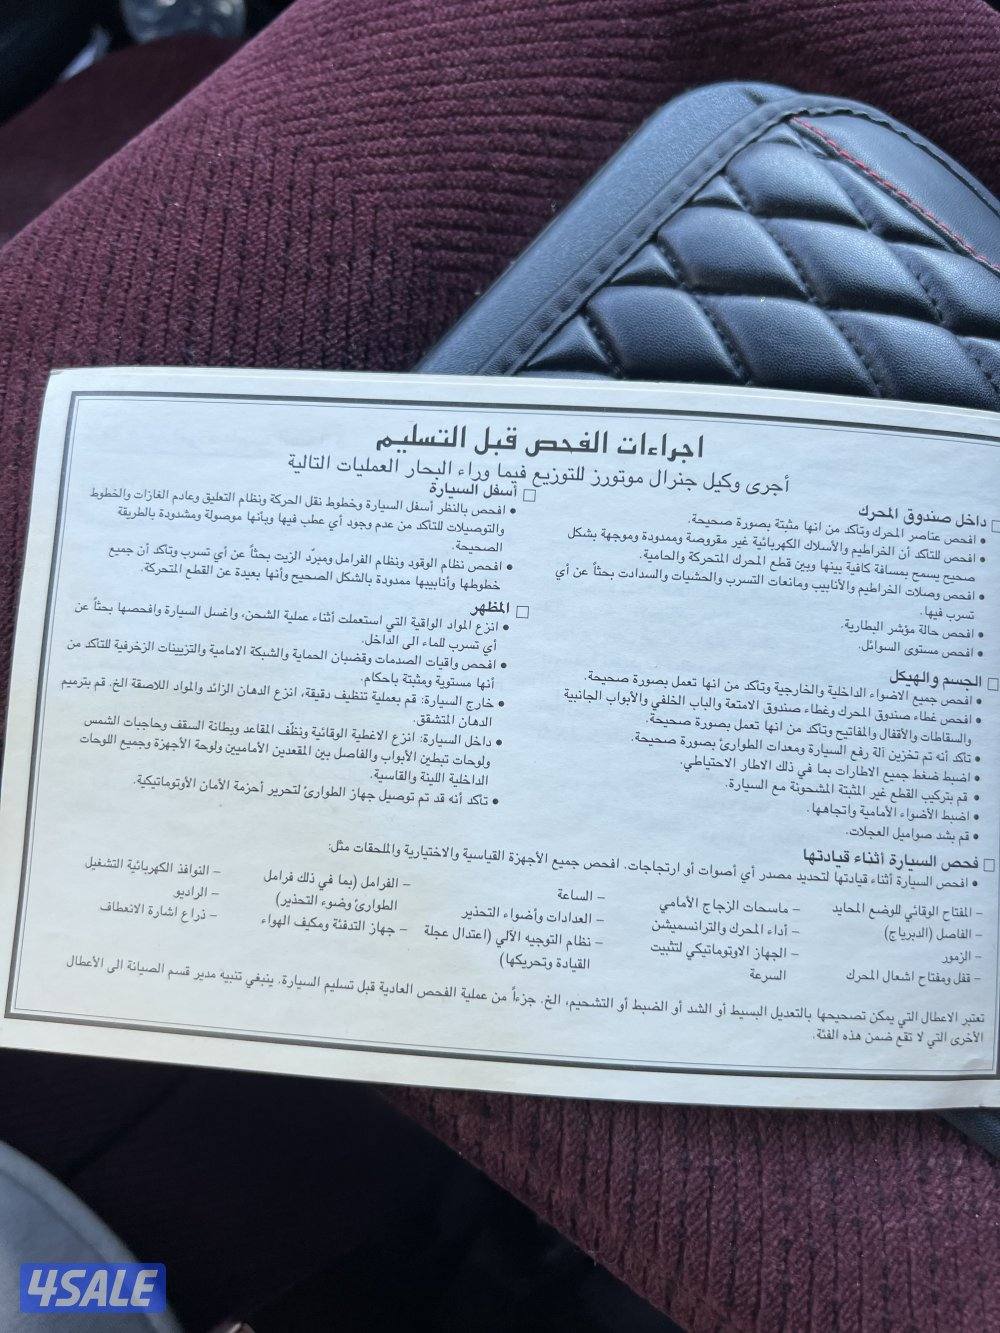 اجراءات الفحص قبل التسليم
أجرى وكيل جنرال موتورز للتوزيع فيما وراء البحار العمليات التالية
داخل صندوق المحرك
• افحص عناصر المحرك وتأكد من انها مثبتة بصورة صحيحة.
• افحص للتأكد أن الخراطيم والأسلاك الكهربائية غير مقروصة وممدودة وموجهة بشكل
صحيح يسمح بمسافة كافية بينها وبين قطع المحرك المتحركة والحامية.
• افحص وصلات الخراطيم والأنابيب ومانعات التسرب والحشيات والسدادت بحثاً عن أي
تسرب فيها.
• افحص حالة مؤشر البطارية.
• افحص مستوى السوائل.
الجسم والهيكل
• افحص جميع الاضواء الداخلية والخارجية وتأكد من انها تعمل بصورة صحيحة.
• افحص غطاء صندوق المحرك وغطاء صندوق الامتعة والباب الخلفي والأبواب الجانبية
والسقاطات والأقفال والمفاتيح وتأكد من انها تعمل بصورة صحيحة.
• تأكد أنه تم تخزين آلة رفع السيارة ومعدات الطوارئ بصورة صحيحة.
• اضبط ضغط جميع الاطارات بما في ذلك الاطار الاحتياطي.
• قم بتركيب القطع غير المثبتة المشحونة مع السيارة.
• اضبط الأضواء الأمامية واتجاهها.
• قم بشد صواميل العجلات.
أسفل السيارة
• افحص بالنظر أسفل السيارة وخطوط نقل الحركة ونظام التعليق وعادم الغازات والخطوط
والتوصيلات للتأكد من عدم وجود أي عطب فيها وبأنها موصولة ومشدودة بالطريقة
الصحيحة.
• افحص نظام الوقود ونظام الفرامل ومبرّد الزيت بحثاً عن أي تسرب وتأكد أن جميع
خطوطها وأنابيبها ممدودة بالشكل الصحيح وأنها بعيدة عن القطع المتحركة.
المظهر
• انزع المواد الواقية التي استعملت أثناء عملية الشحن، واغسل السيارة وافحصها بحثاً عن
أي تسرب للماء الى الداخل.
• افحص واقيات الصدمات وقضبان الحماية والشبكة الامامية والتزيينات الزخرفية للتاكد من
أنها مستوية ومثبتة باحكام.
• خارج السيارة: قم بعملية تنظيف دقيقة، انزع الدهان الزائد والمواد اللاصقة الخ. قم بترميم
الدهان المتشقق.
• داخل السيارة: انزع الاغطية الوقائية ونظّف المقاعد وبطانة السقف وحاجبات الشمس
ولوحات تبطين الأبواب والفاصل بين المقعدين الأماميين ولوحة الأجهزة وجميع اللوحات
الداخلية اللينة والقاسية.
• تأكد أنه قد تم توصيل جهاز الطوارئ لتحرير أحزمة الأمان الأوتوماتيكية.
فحص السيارة أثناء قيادتها
• افحص السيارة أثناء قيادتها لتحديد مصدر أي أصوات أو ارتجاجات. افحص جميع الأجهزة القياسية والاختيارية والملحقات مثل:
– المفتاح الوقائي للوضع المحايد
– الفاصل (الدبرياج)
– الزمور
– قفل ومفتاح اشعال المحرك
– ماسحات الزجاج الأمامي
– أداء المحرك والترانسميشن
– الجهاز الاوتوماتيكي لتثبيت
السرعة
– الساعة
– العدادات وأضواء التحذير
– نظام التوجيه الآلي (اعتدال عجلة
القيادة وتحريكها)
– الفرامل (بما في ذلك فرامل
الطوارئ وضوء التحذير)
– جهاز التدفئة ومكيف الهواء
– النوافذ الكهربائية التشغيل
– الراديو
– ذراع اشارة الانعطاف
تعتبر الاعطال التي يمكن تصحيحها بالتعديل البسيط أو الشد أو الضبط أو التشحيم، الخ. جزءاً من عملية الفحص العادية قبل تسليم السيارة. ينبغي تنبيه مدير قسم الصيانة الى الأعطال
الأخرى التي لا تقع ضمن هذه الفئة.
4SALE